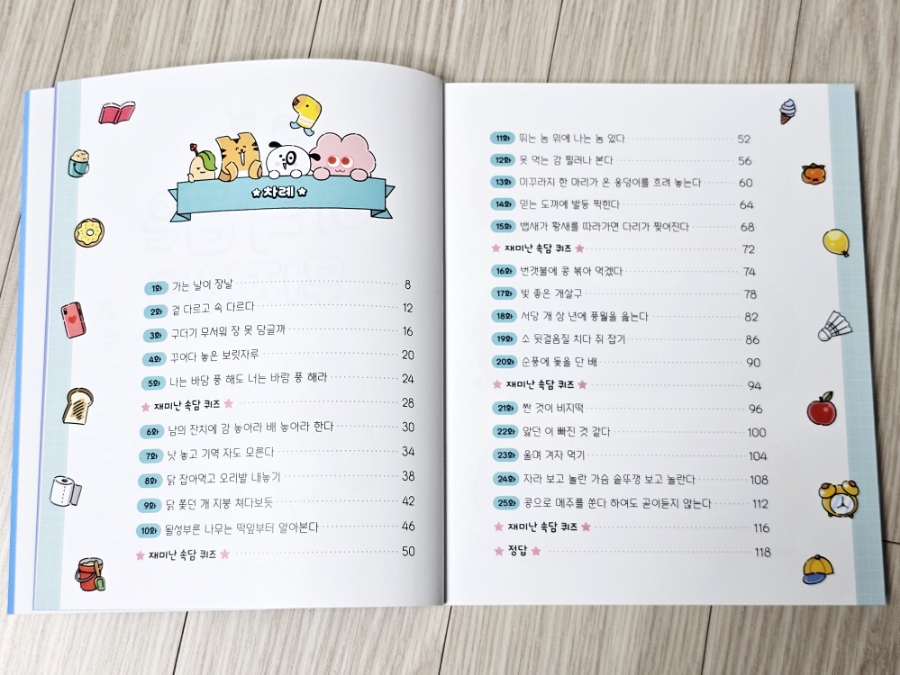 차례
1화 가는 날이 장날 8
2화 겉 다르고 속 다르다 12
3화 구더기 무서워 장 못 담글까 16
4화 꾸어다 놓은 보릿자루 20
5화 나는 바담 풍 해도 너는 바람 풍 해라 24
재미난 속담 퀴즈 28
6화 남의 잔치에 감 놓아라 배 놓아라 한다 30
7화 낫 놓고 기역 자도 모른다 34
8화 닭 잡아먹고 오리발 내놓기 38
9화 닭 쫓던 개 지붕 쳐다보듯 42
10화 될성부른 나무는 떡잎부터 알아본다 46
재미난 속담 퀴즈 50
11화 뛰는 놈 위에 나는 놈 있다 52
12화 못 먹는 감 찔러나 본다 56
13화 미꾸라지 한 마리가 온 웅덩이를 흐려 놓는다 60
14화 믿는 도끼에 발등 찍힌다 64
15화 뱁새가 황새를 따라가면 다리가 찢어진다 68
재미난 속담 퀴즈 72
16화 번갯불에 콩 볶아 먹겠다 74
17화 빛 좋은 개살구 78
18화 서당 개 삼 년에 풍월을 읊는다 82
19화 소 뒷걸음질 치다 쥐 잡기 86
20화 순풍에 돛을 단 배 90
재미난 속담 퀴즈 94
21화 싼 것이 비지떡 96
22화 앓던 이 빠진 것 같다 100
23화 울며 겨자 먹기 104
24화 자라 보고 놀란 가슴 솥뚜껑 보고 놀란다 108
25화 콩으로 메주를 쑨다 하여도 곧이듣지 않는다 112
재미난 속담 퀴즈 116
정답 118